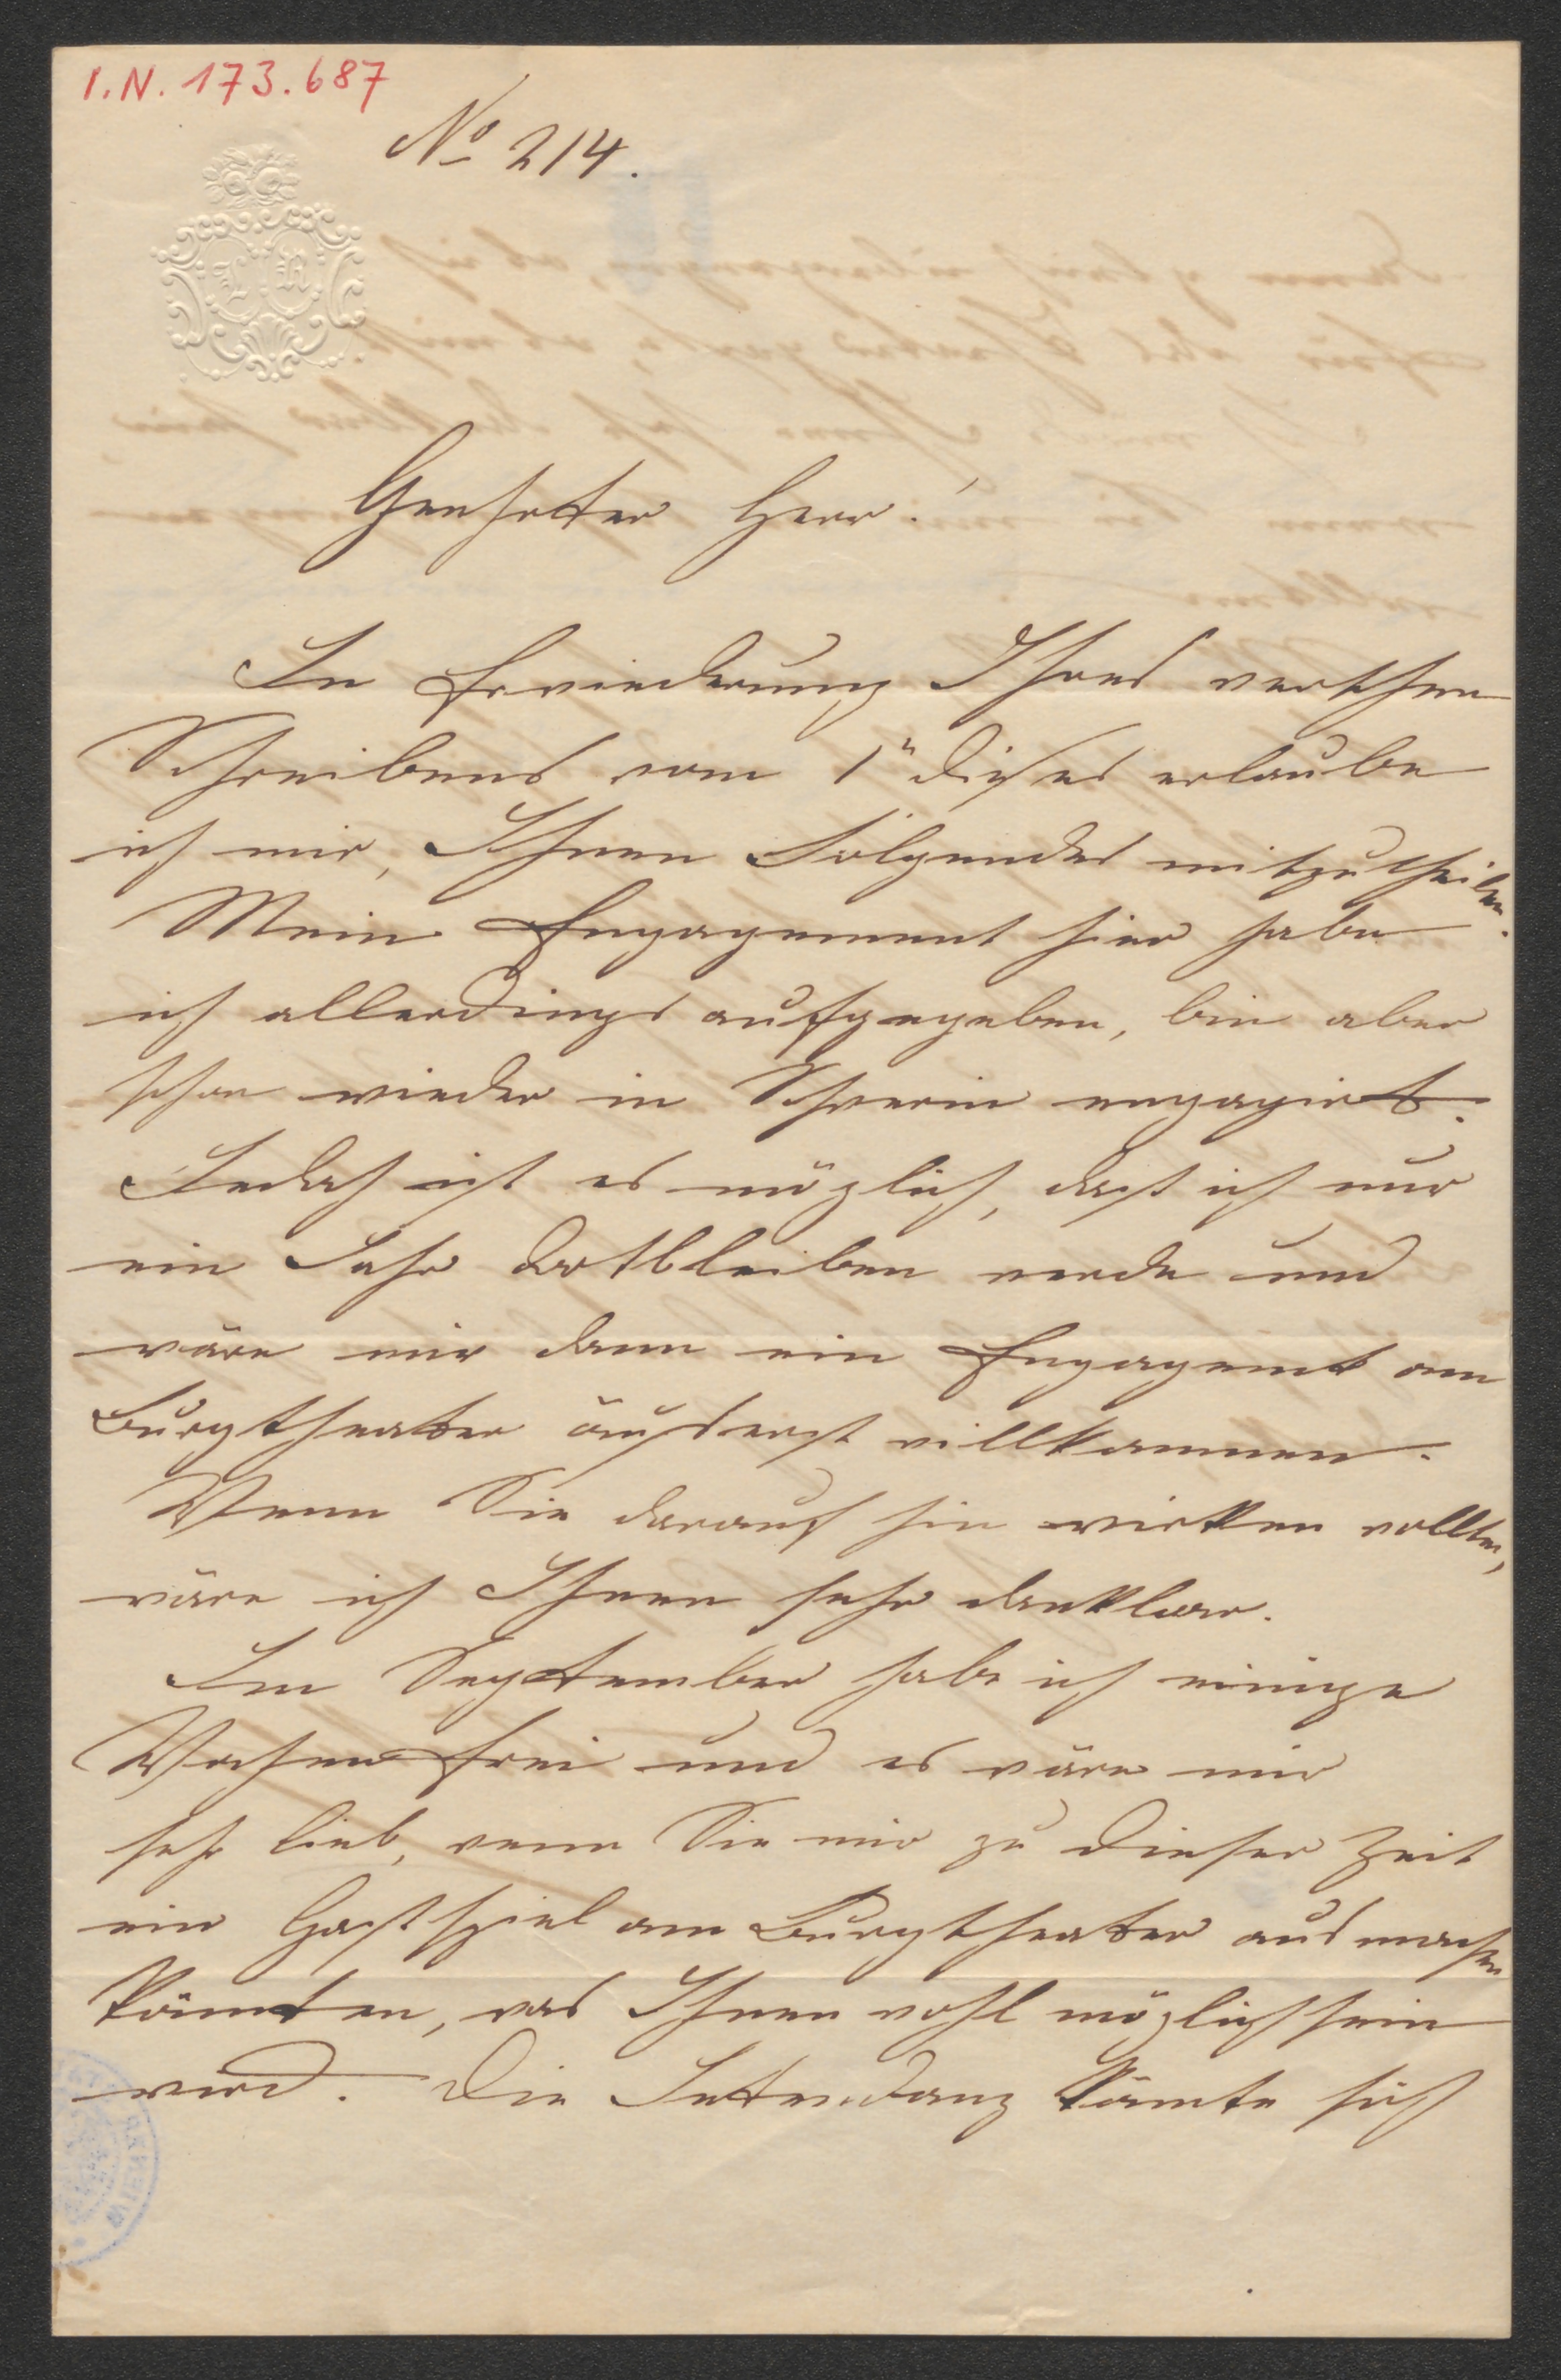 I.N. 173.687
No 214.
Geehrter Herr!
In Erwiederung Ihres werthen
Schreibens vom 1n dieses erlaube
ich mir, Ihnen Folgendes mitzutheilen.
Mein Engagement hier habe
ich allerdings aufgegeben, bin aber
schon wieder in Schwerin engagirt.
Jedoch ist es möglich, dass ich nur
ein Jahr dortbleiben werde und
wäre mir dann ein Engagemt am
Burgtheater äusserst willkommen.
Wenn Sie darauf hin wirken wollten,
wäre ich Ihnen sehr dankbar.
Im September habe ich einige
Wochen frei und es wäre mir
sehr lieb, wenn Sie mir zu dieser Zeit
ein Gastspiel am Burgtheater ausmachen
könnten, was Ihnen wohl möglich sein
wird. Die Intendanz könnte sich